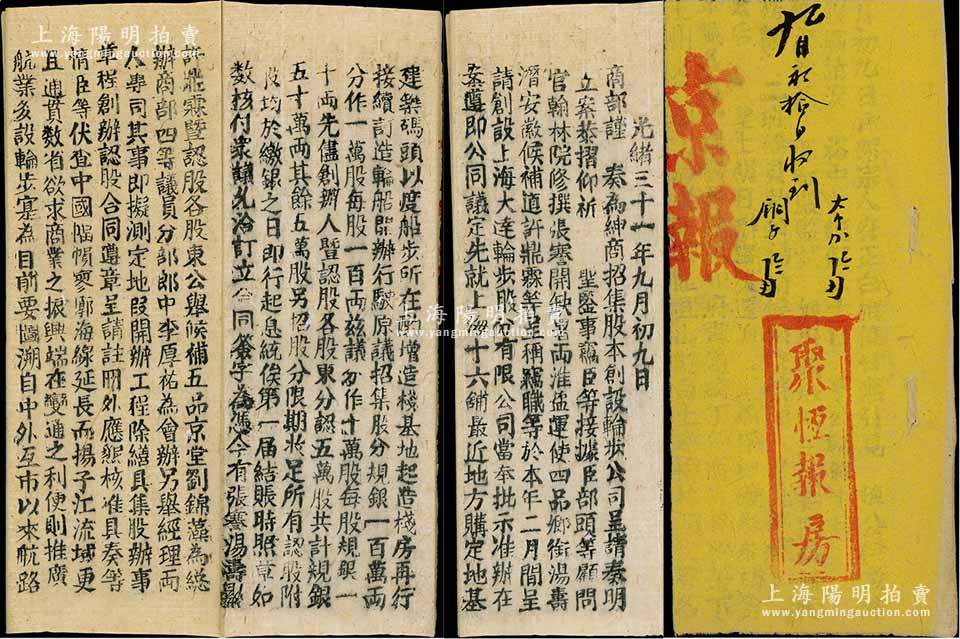 上海陽明拍賣
京報
聚恆報房
光緒三十一年九月初九日
商部謹 奏為紳商招集股本創設輪步公司呈請奏明
立案恭摺仰祈 聖鑒事竊臣等接據臣部頭等顧問
官翰林院修撰張謇開缺署兩淮鹽運使四品卿銜湯壽
潛安徽候補道許鼎霖等呈稱竊職等於本年二月間呈
請創設上海大達輪步股分有限公司當奉批示准辦在
案遵即公同議定先就上海十六舖最近地方購定地基
建築碼頭以度船步所在酌增造棧基地起造棧房再行
接續訂造輪船開辦行駛原議招集股分規銀一百萬兩
分作一萬股每股一百兩茲議分作十萬股每股規銀一
十兩先儘創辦人暨認股各股東分認五萬股共計規銀
五十萬兩其餘五萬股另招股分限期收足所有認股附
股均於繳銀之日即行起息統俟第一屆結賬時照章如
數核付眾議允洽訂立合同簽字為憑今有張謇湯壽潛
許鼎霖暨認股各股東公舉候補五品京堂劉錦藻為總
辦商部四等議員分部郎中李厚祐為會辦另舉經理兩
人專司其事即擬測定地段開辦工程除繕具集股辦事
章程創辦認股合同遵章呈請註冊外應懇核准具奏等
情臣等伏查中國幅幀寥廓海線延長而揚子江流域更
且通貫數省欲求商業之振興端在變通之利便則推廣
航業多設輪步塞為目前要圖溯自中外互市以來航路
上海陽明拍賣
www.yangmingauction.com